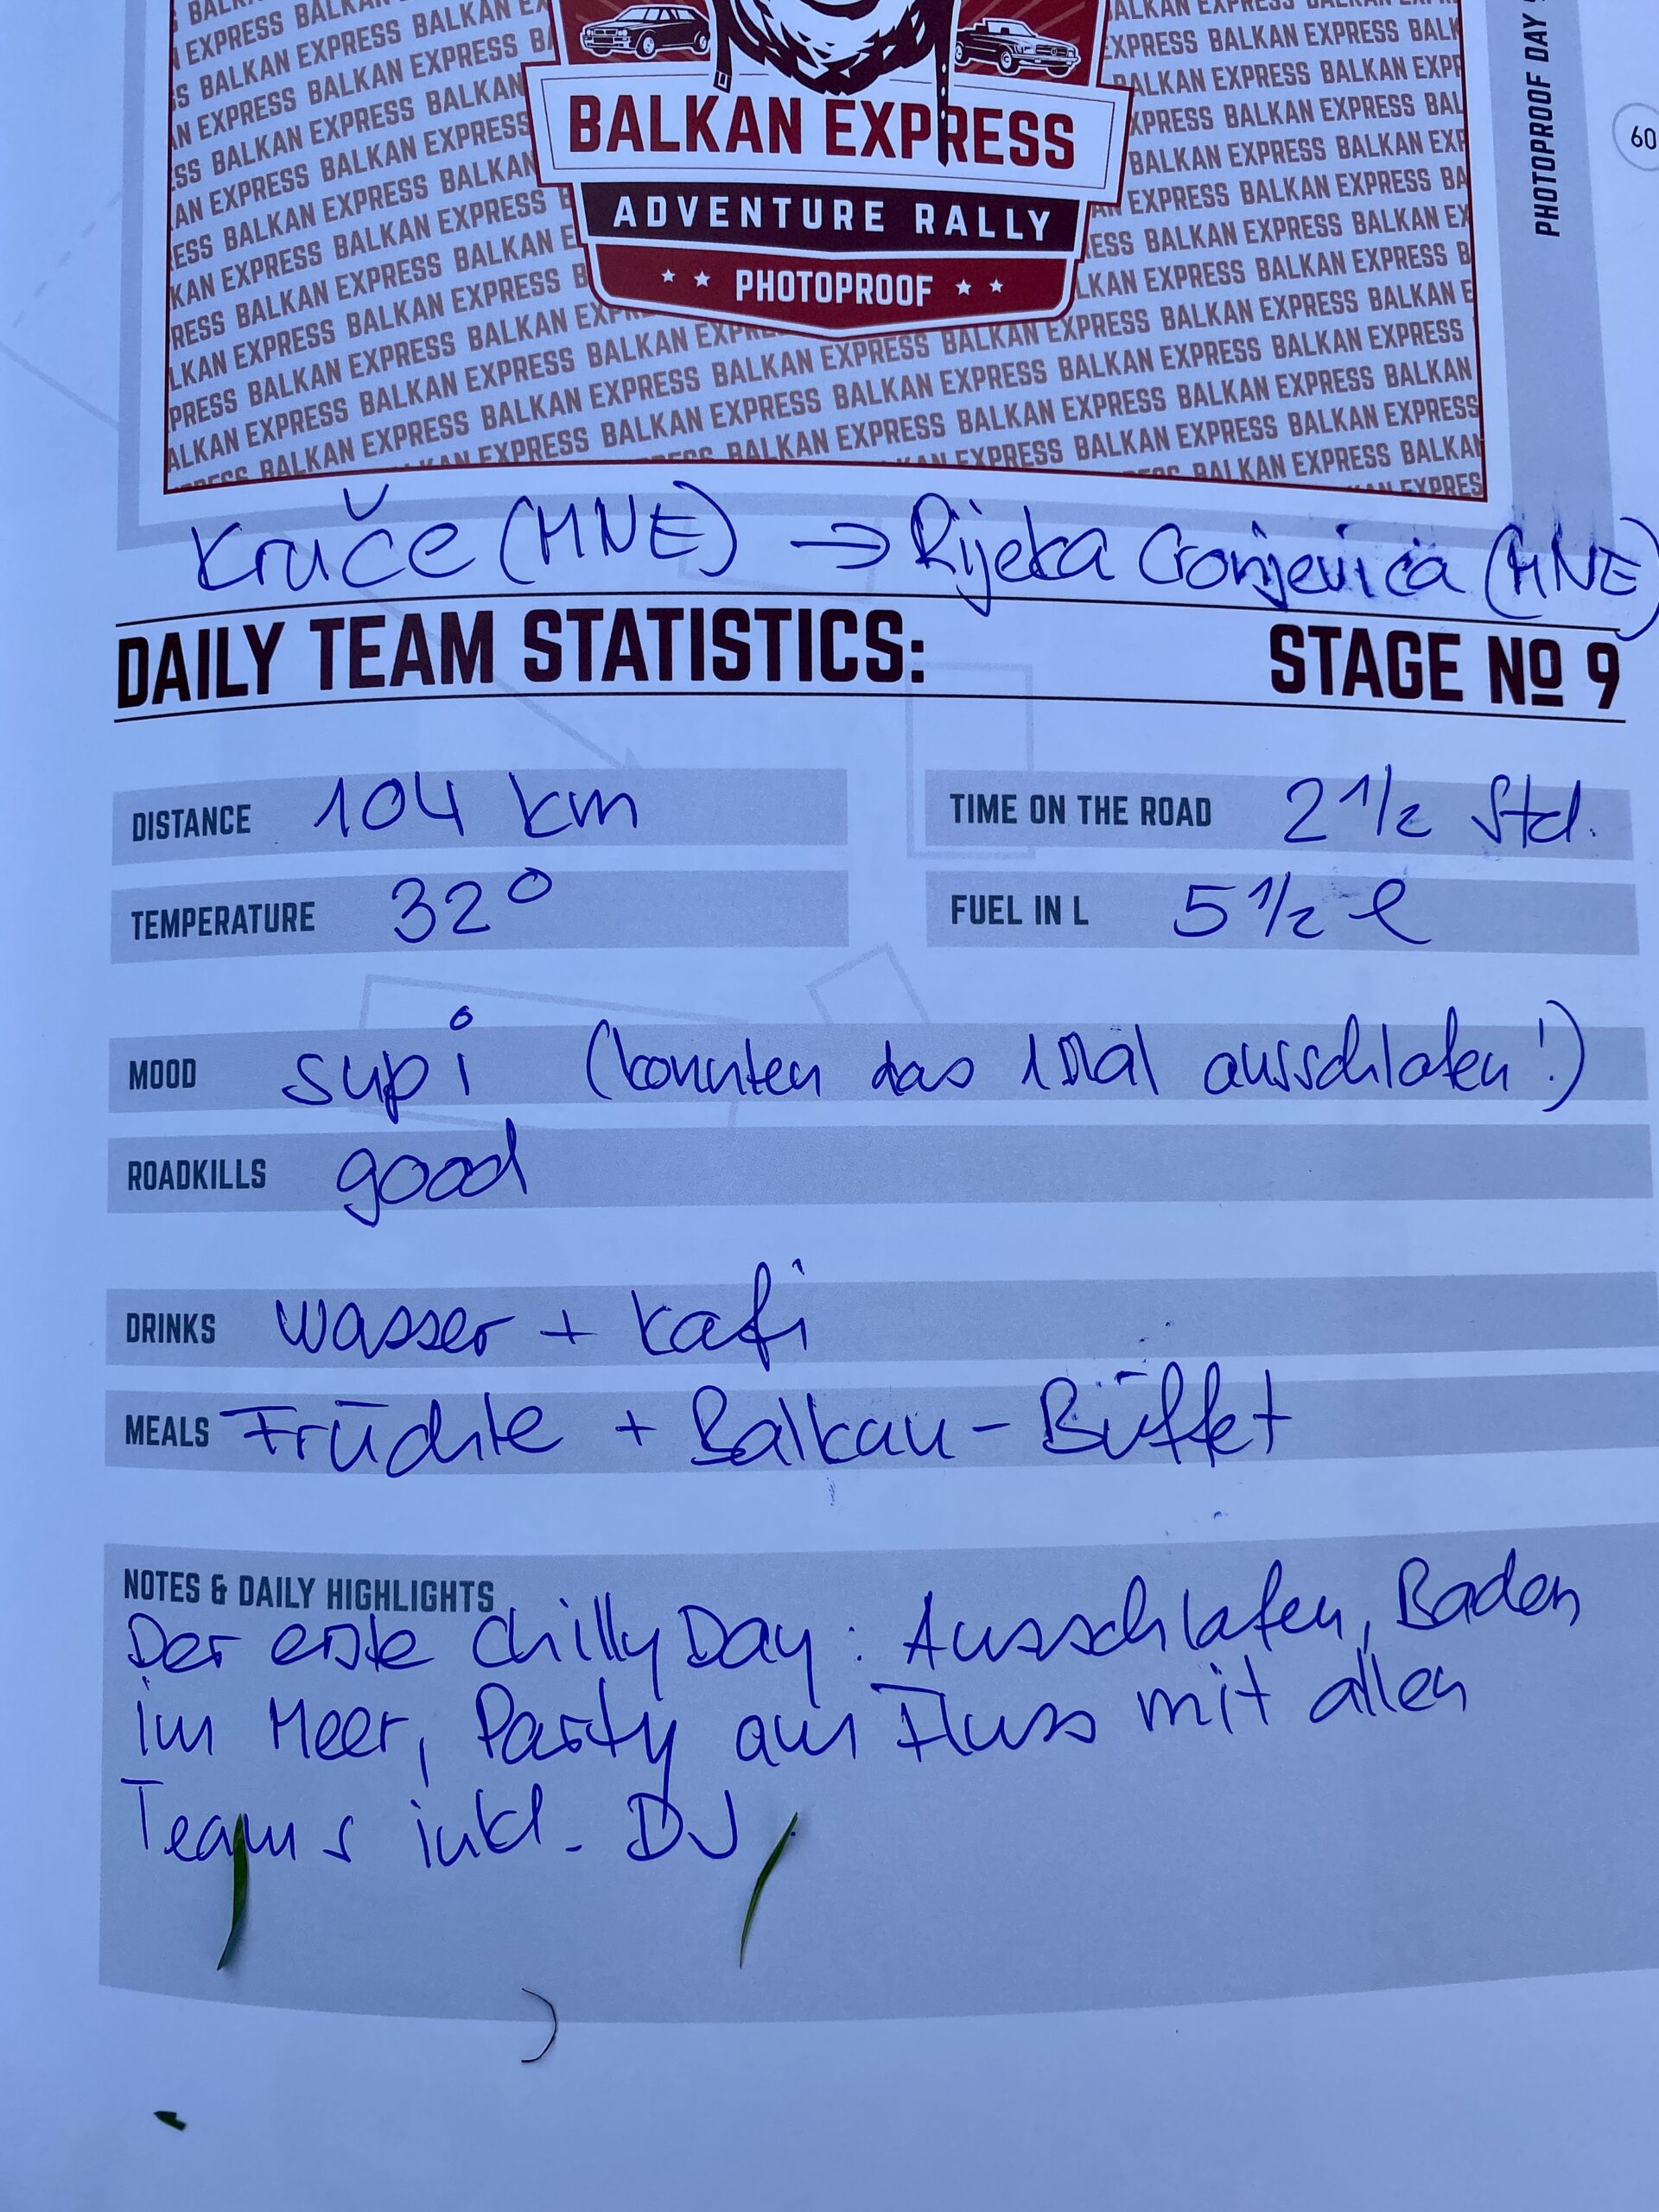 BALKAN EXPRESS
ADVENTURE RALLY
PHOTOPROOF
PHOTOPROOF DAY
60
Kruče (MNE) → Rijeka Cronjevića (MNE)
DAILY TEAM STATISTICS: STAGE No 9
DISTANCE 104 km TIME ON THE ROAD 2 1/2 Std.
TEMPERATURE 32° FUEL IN L 5 1/2 l
MOOD supi (konnten das 1 Mal ausschlafen!)
ROADKILLS good
DRINKS Wasser + Kafi
MEALS Früchte + Balkan-Büffet
NOTES & DAILY HIGHLIGHTS
Der erste Chilly Day: Ausschlafen, Baden
im Meer, Party am Fluss mit allen
Teams inkl. DJ